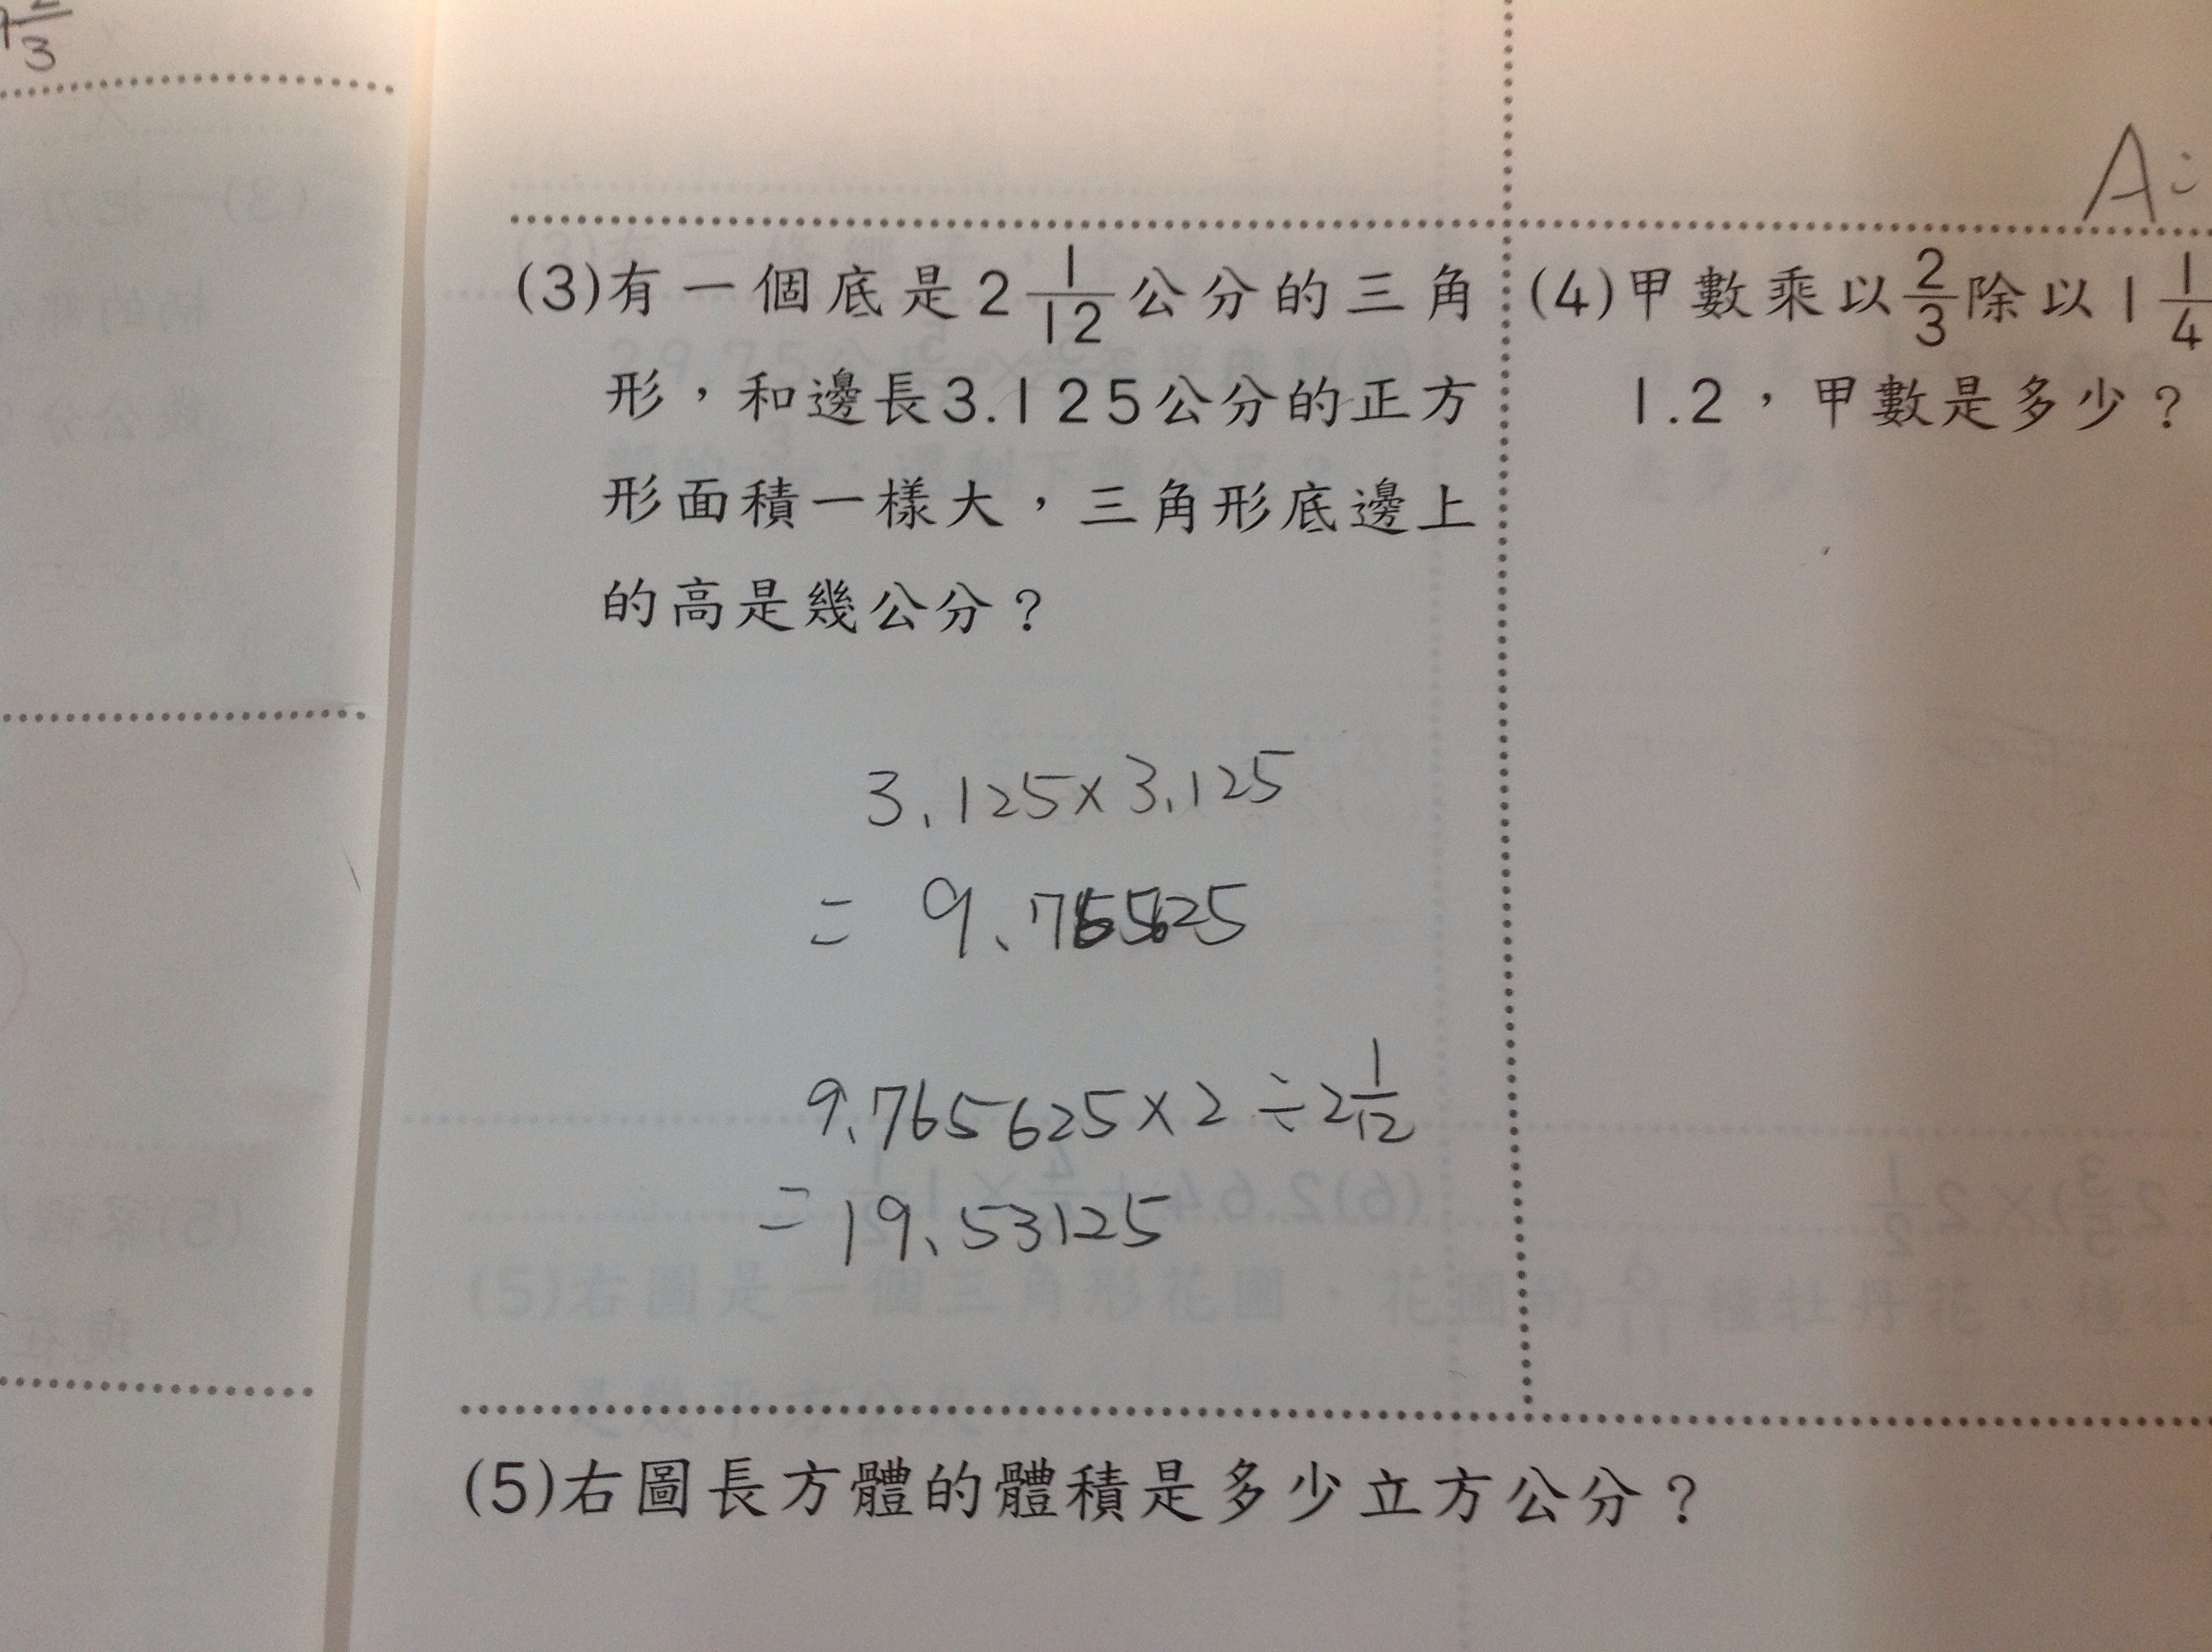 (3)有一個底是2 1/12 公分的三角
形，和邊長3.125公分的正方
形面積一樣大，三角形底邊上
的高是幾公分？
3.125×3.125
= 9.765625
9.765625×2÷2 1/12
=19.53125
A:
(4)甲數乘以 2/3 除以1 1/4
1.2，甲數是多少？
(5)右圖長方體的體積是多少立方公分？